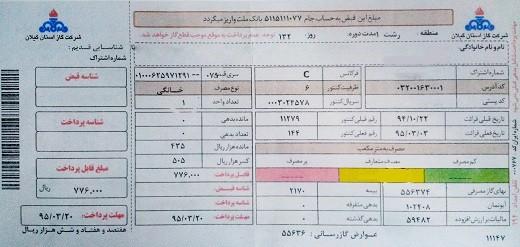 مبلغ این قبض به حساب جام ۵۱۱۵۱۱۱۰۷۷ بانک ملت واریز میگردد
شرکت گاز استان گیلان
منطقه رشت ۱ مدت دوره: ۱۳۲ روز
توجه: عدم پرداخت به موقع موجب قطع گاز خواهد شد.
شرکت گاز استان گیلان
نام و نام خانوادگی:
شناسایی قدیم:
شماره اشتراک
شماره اشتراک
فرکانس C
کدآدرس ۰۳۲۰۰۱۶۳۰۰۰۱
ظرفیت کنتور ۶
نوع مصرف خانگی
شناسه قبض
کد پستی
سریال کنتور ۰۰۰۳۰۲۴۵۷۸
تعداد واحد ۱
تاریخ قبلی قرائت ۹۴/۱۰/۲۲
رقم قبلی کنتور ۱۱۲۷۹
مانده بدهی ۰
شناسه پرداخت
تاریخ فعلی قرائت ۹۵/۰۳/۰۳
رقم فعلی کنتور ۱۴۴
بدهی ۰
مصرف به متر مکعب
مانده هزار ریال ۴۳۵
کم مصرف
مصرف متعارف
پر مصرف
کسر هزار ریال ۵۰۵
مبلغ قابل پرداخت
قابل پرداخت ۷۷۶.۰۰۰
۷۷۶.۰۰۰ ریال
بهای گاز مصرفی ۵۵۶۳۷۴
بیمه ۲۱۷۰
شناسه قبض:
آبونمان ۱۰۲۴۰۸
بدهی متفرقه ۰
شناسه پرداخت:
مالیات بر ارزش افزوده ۵۹۴۸۲
بدهی گذشته ۰
مهلت پرداخت: ۹۵/۰۳/۲۰
مهلت پرداخت: ۹۵/۰۳/۲۰
۱۱۱۴۷
عوارض گازرسانی: ۵۵۶۳۶
هفتصد و هفتاد و شش هزار ریال